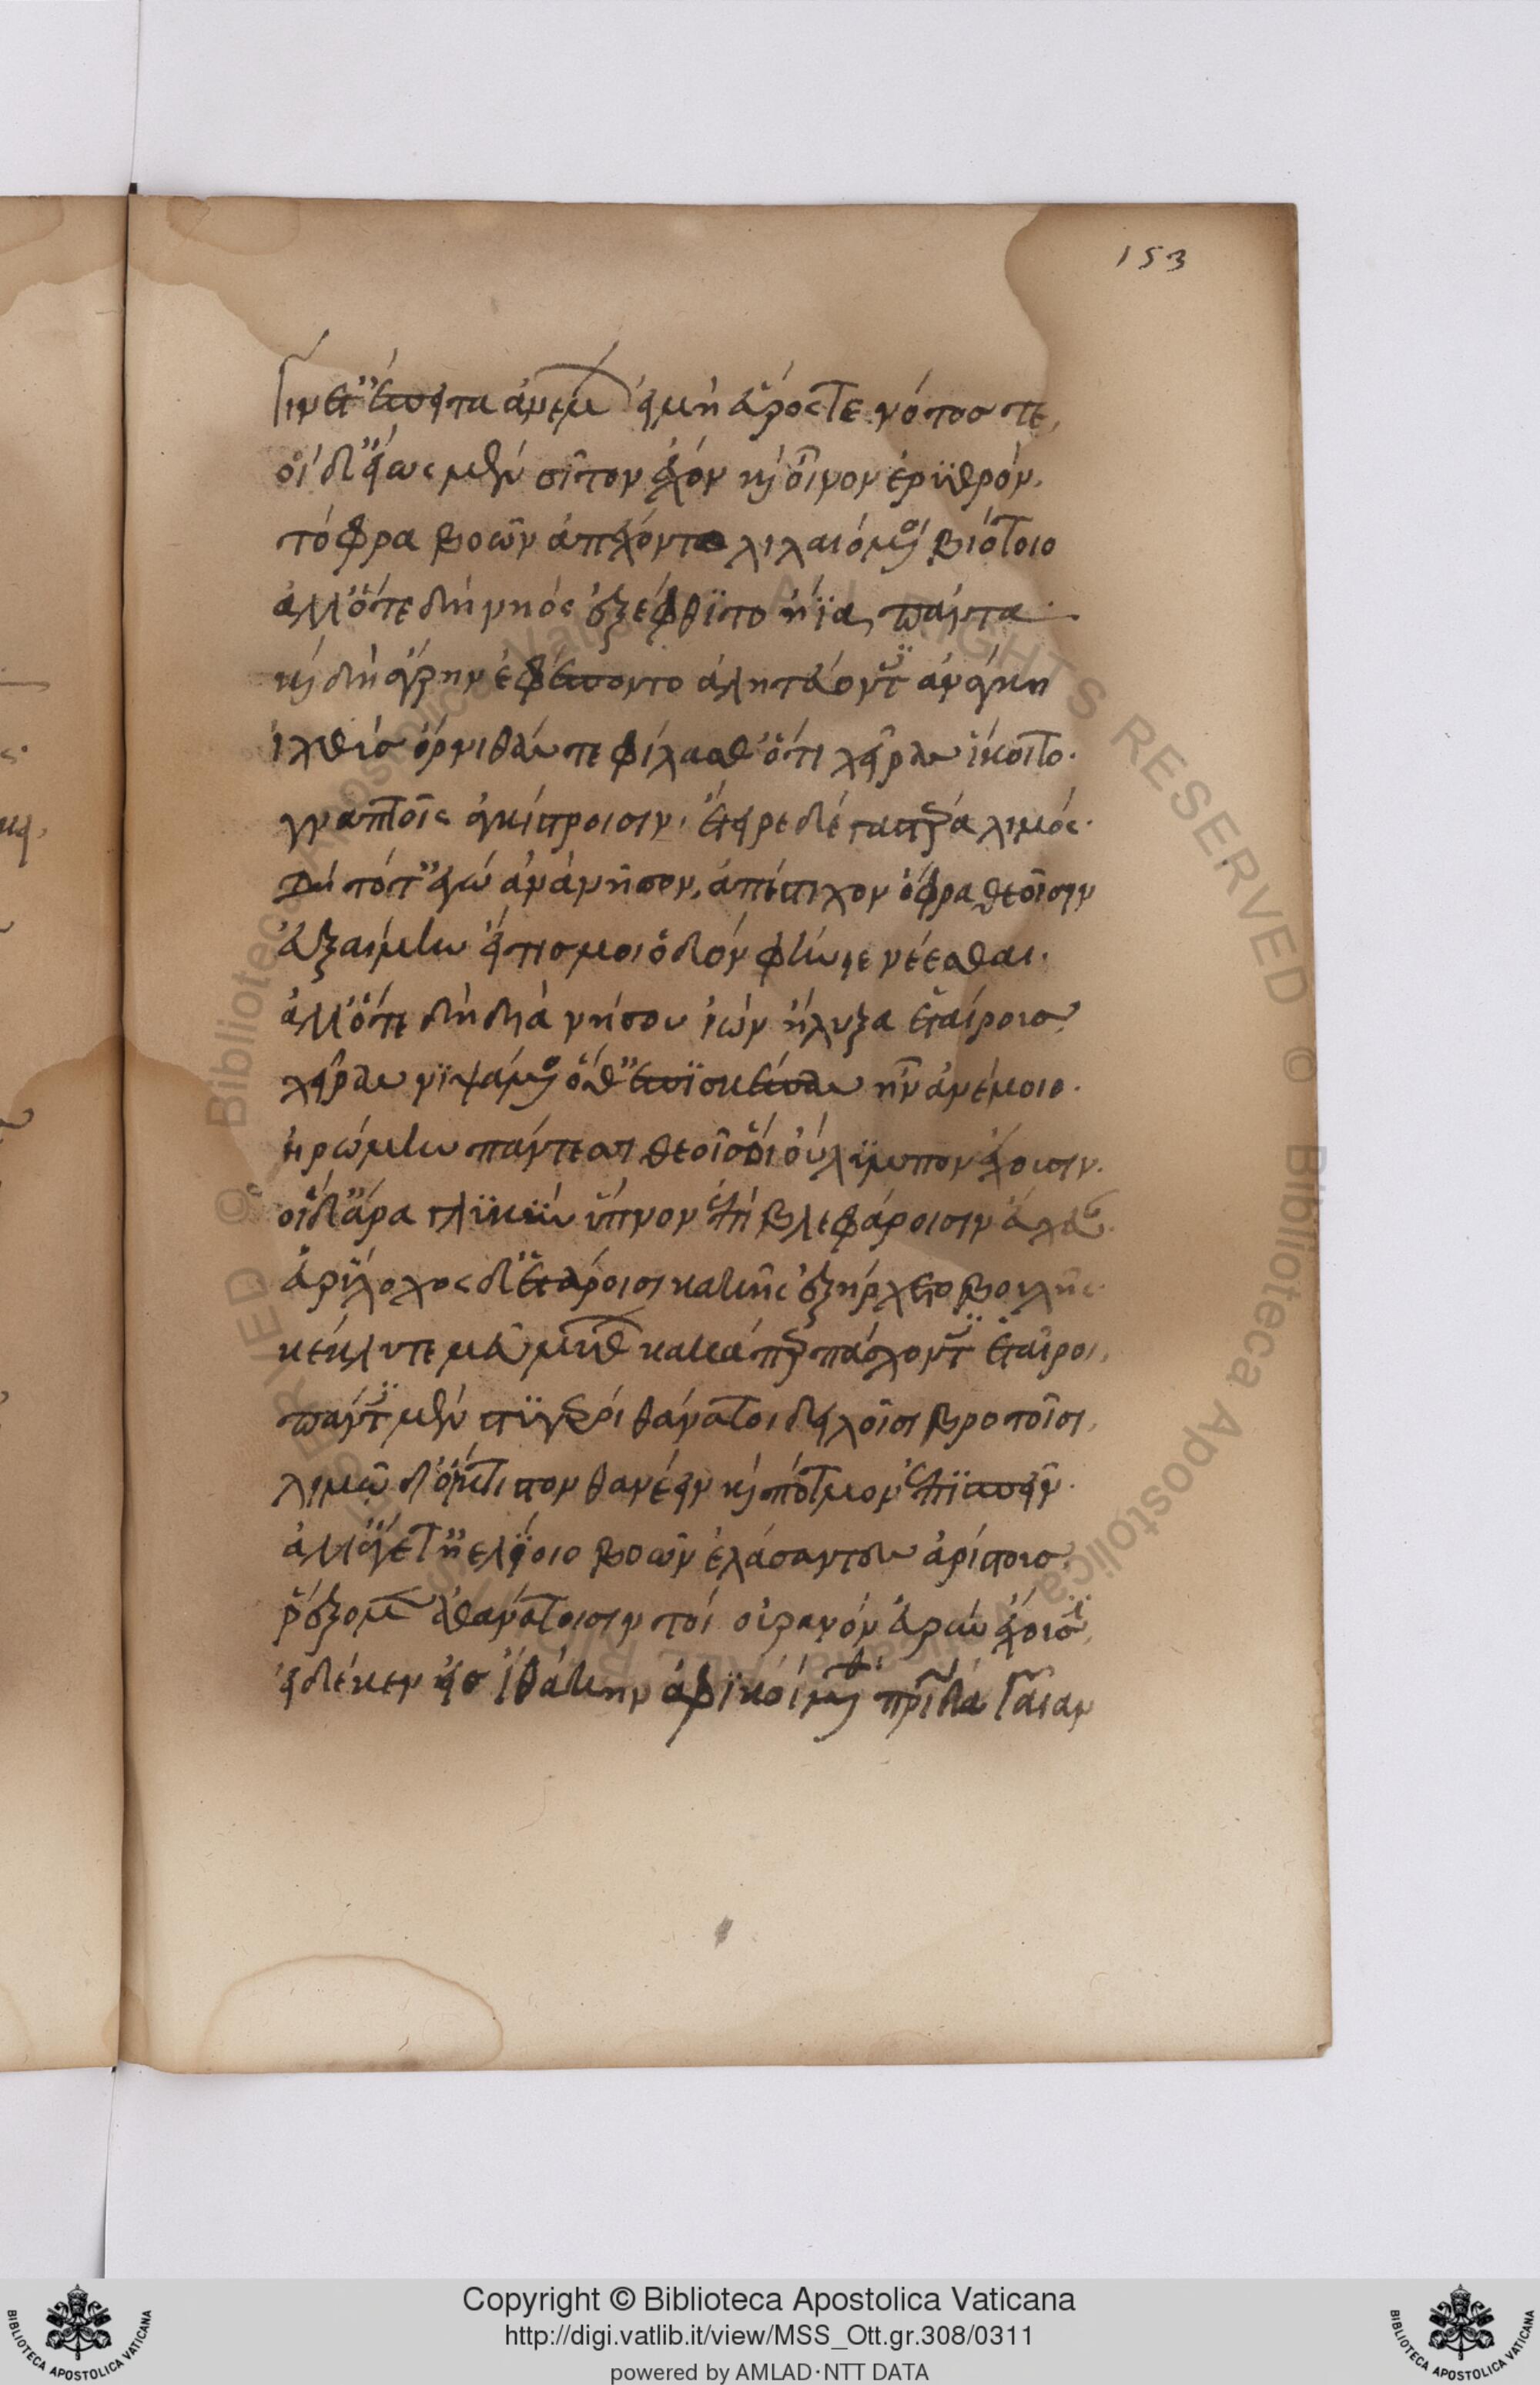 153
γίνετ' ἔπειτα ἀνέμων εἰ μὴ εὖρός τε νότος τε,
οἱ δ' εἵως μὲν σῖτον ἔχον καὶ οἶνον ἐρυθρόν,
τόφρα βοῶν ἀπέχοντο λιλαιόμενοι βιότοιο
ἀλλ' ὅτε δὴ νηὸς ἐξέφθιτο ἤϊα πάντα
καὶ δὴ ἄγρην ἐφέπεσκον ἀλητεύοντες ἀνάγκη
ἰχθῦς ὄρνιθάς τε φίλας θ' ὅτι χεῖρας ἵκοιτο.
γναπτοῖς ἀγκίστροισιν. ἔτειρε δὲ γαστέρα λιμός.
δὴ τότ' ἐγὼν ἀνὰ νῆσον, ἀπέστιχον ὄφρα θεοῖσιν
εὐξαίμην εἴ τίς μοι ὁδὸν φήνειε νέεσθαι.
ἀλλ' ὅτε δὴ διὰ νήσου ἰὼν ἤλυξα ἑταίρους,
χεῖρας νιψάμενος ὅθ' ἐπὶ σκέπας ἦν ἀνέμοιο.
ἠρώμην πάντεσσι θεοῖς οἳ ὄλυμπον ἔχουσιν.
οἱ δ' ἄρα μοι γλυκὺν ὕπνον ἐπὶ βλεφάροισιν ἔχευαν.
εὐρύλοχος δ' ἑτάροισι κακῆς ἐξήρχετο βουλῆς.
κέκλυτέ μευ μύθων κακά περ πάσχοντες ἑταῖροι,
πάντες μὲν στυγεροὶ θάνατοι δειλοῖσι βροτοῖσι,
λιμῷ δ' οἴκτιστον θανέειν καὶ πότμον ἐπισπεῖν.
ἀλλ' ἄγετ' ἠελίοιο βοῶν ἐλάσαντες ἀρίστας
ῥέξομεν ἀθανάτοισιν τοὶ οὐρανὸν εὐρὺν ἔχουσιν,
εἰ δέ κεν εἰς ἰθάκην ἀφικοίμεθα πατρίδα γαῖαν
Copyright © Biblioteca Apostolica Vaticana
http://digi.vatlib.it/view/MSS_Ott.gr.308/0311
powered by AMLAD·NTT DATA